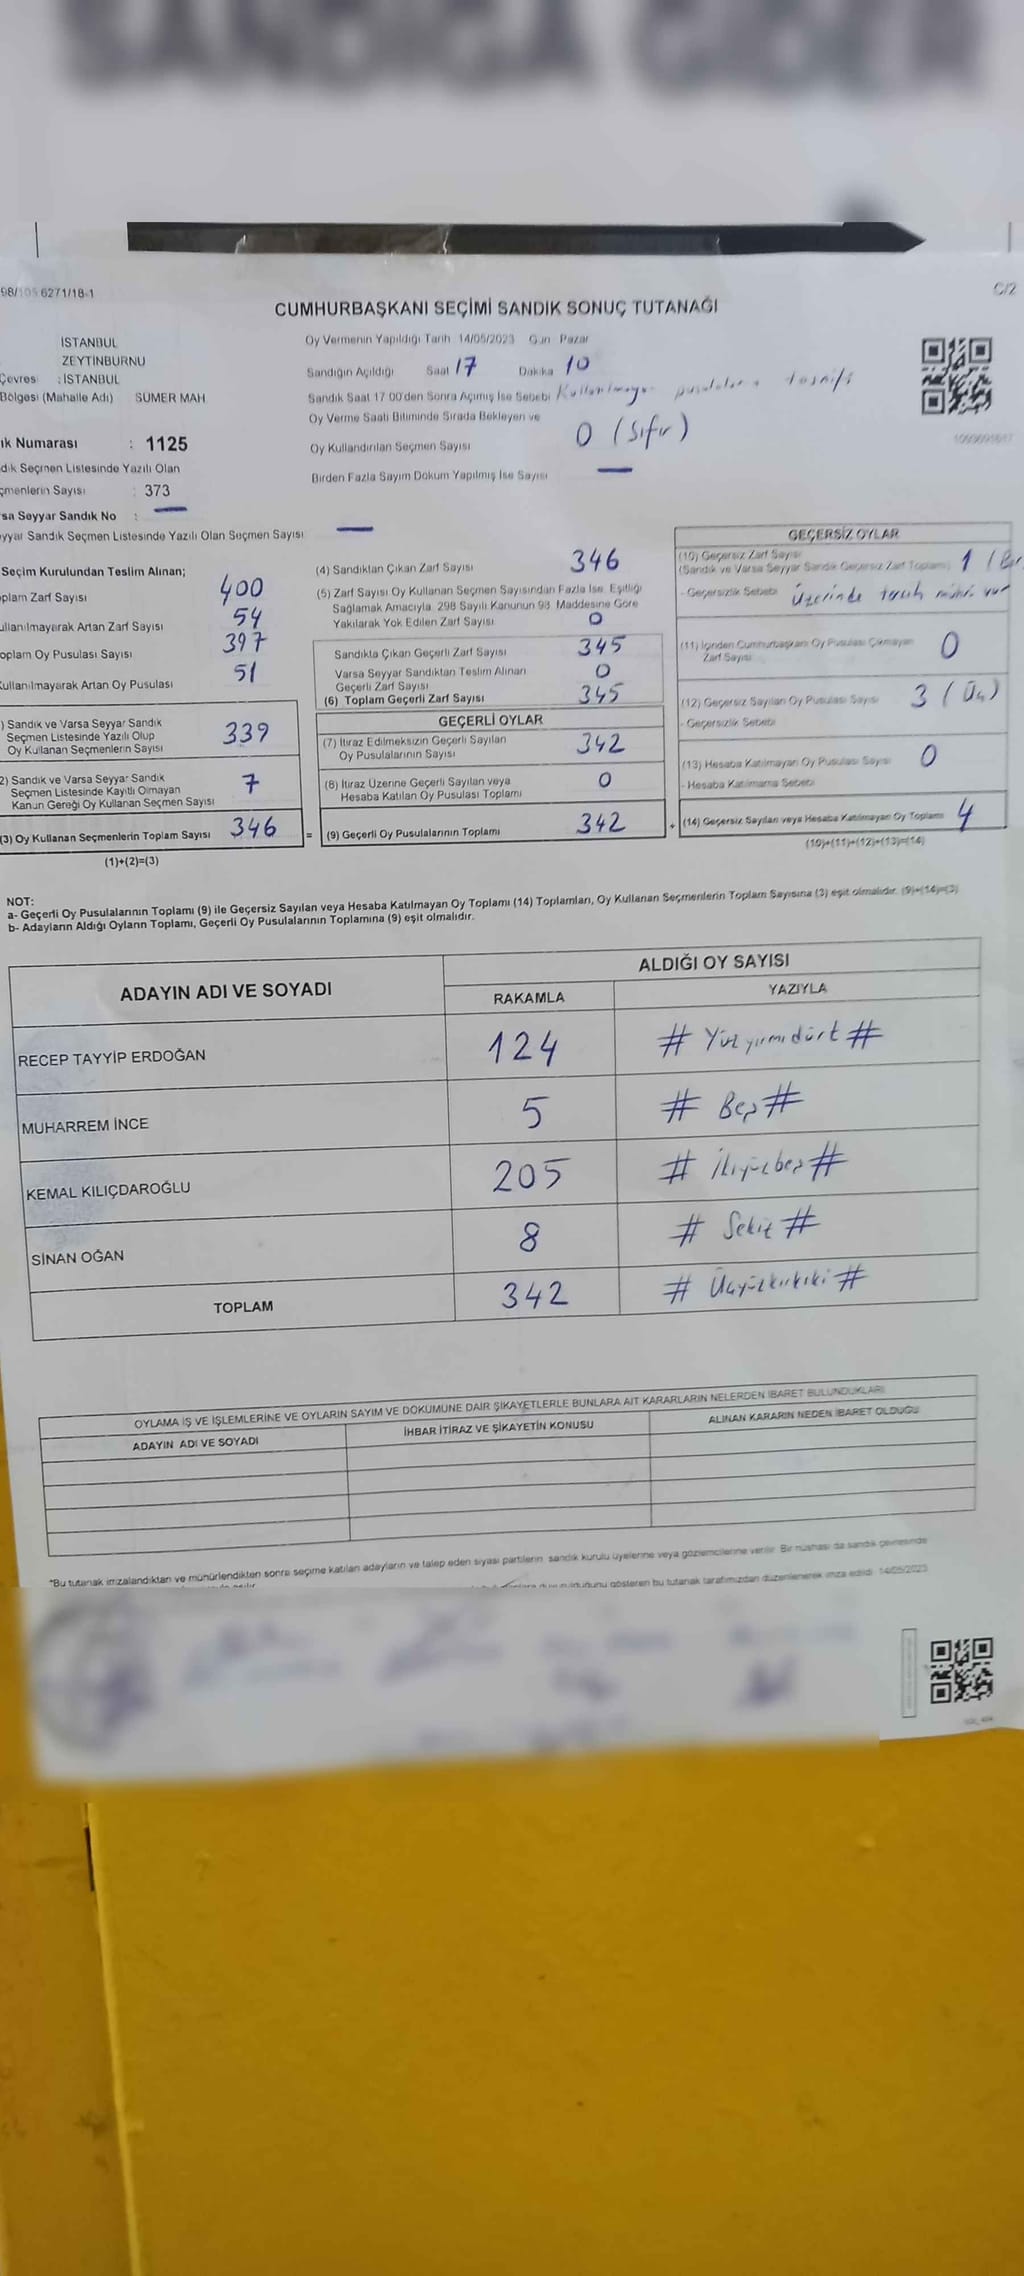 SANDIĞA GİDER
98/105 6271/18-1
C/2
CUMHURBAŞKANI SEÇİMİ SANDIK SONUÇ TUTANAĞI
İSTANBUL
ZEYTİNBURNU
Çevres : İSTANBUL
Bölgesi (Mahalle Adı) SÜMER MAH
ık Numarası : 1125
dık Seçmen Listesinde Yazılı Olan
çmenlerin Sayısı : 373
sa Seyyar Sandık No : —
yyar Sandık Seçmen Listesinde Yazılı Olan Seçmen Sayısı —
Oy Vermenin Yapıldığı Tarih 14/05/2023 Gün Pazar
Sandığın Açıldığı Saat 17 Dakika 10
Sandık Saat 17 00'den Sonra Açımış İse Sebebi Kullanılmayan pusulaların tasnifi
Oy Verme Saati Bitiminde Sırada Bekleyen ve
Oy Kullandırılan Seçmen Sayısı 0 (Sıfır)
Birden Fazla Sayım Döküm Yapılmış İse Sayısı —
Seçim Kurulundan Teslim Alınan;
plam Zarf Sayısı 400
ullanılmayarak Artan Zarf Sayısı 54
oplam Oy Pusulası Sayısı 397
Kullanılmayarak Artan Oy Pusulası 51
) Sandık ve Varsa Seyyar Sandık
Seçmen Listesinde Yazılı Olup
Oy Kullanan Seçmenlerin Sayısı 339
2) Sandık ve Varsa Seyyar Sandık
Seçmen Listesinde Kayıtlı Olmayan
Kanun Gereği Oy Kullanan Seçmen Sayısı 7
(3) Oy Kullanan Seçmenlerin Toplam Sayısı 346
(1)+(2)=(3)
(4) Sandıktan Çıkan Zarf Sayısı 346
(5) Zarf Sayısı Oy Kullanan Seçmen Sayısından Fazla İse, Eşitliği
Sağlamak Amacıyla, 298 Sayılı Kanunun 98. Maddesine Göre
Yakılarak Yok Edilen Zarf Sayısı 0
Sandıkta Çıkan Geçerli Zarf Sayısı 345
Varsa Seyyar Sandıktan Teslim Alınan
Geçerli Zarf Sayısı 0
(6) Toplam Geçerli Zarf Sayısı 345
GEÇERLİ OYLAR
(7) İtiraz Edilmeksizin Geçerli Sayılan
Oy Pusulalarının Sayısı 342
(8) İtiraz Üzerine Geçerli Sayılan veya
Hesaba Katılan Oy Pusulası Toplamı 0
= (9) Geçerli Oy Pusulalarının Toplamı 342
GEÇERSİZ OYLAR
(10) Geçersiz Zarf Sayısı
(Sandık ve Varsa Seyyar Sandık Geçersiz Zarf Toplamı) 1 (Bir
- Geçersizlik Sebebi Üzerinde tercih mührü var
(11) İçinden Cumhurbaşkanı Oy Pusulası Çıkmayan
Zarf Sayısı 0
(12) Geçersiz Sayılan Oy Pusulası Sayısı 3 (Üç)
- Geçersizlik Sebebi
(13) Hesaba Katılmayan Oy Pusulası Sayısı 0
- Hesaba Katılmama Sebebi
+ (14) Geçersiz Sayılan veya Hesaba Katılmayan Oy Toplamı 4
(10)+(11)+(12)+(13)=(14)
NOT:
a- Geçerli Oy Pusulalarının Toplamı (9) ile Geçersiz Sayılan veya Hesaba Katılmayan Oy Toplamı (14) Toplamları, Oy Kullanan Seçmenlerin Toplam Sayısına (3) eşit olmalıdır. (9)+(14)=(3)
b- Adayların Aldığı Oyların Toplamı, Geçerli Oy Pusulalarının Toplamına (9) eşit olmalıdır.
ADAYIN ADI VE SOYADI
ALDIĞI OY SAYISI
RAKAMLA YAZIYLA
RECEP TAYYİP ERDOĞAN 124 # Yüzyirmidört #
MUHARREM İNCE 5 # Beş #
KEMAL KILIÇDAROĞLU 205 # İkiyüzbeş #
SİNAN OĞAN 8 # Sekiz #
TOPLAM 342 # Üçyüzkırkiki #
OYLAMA İŞ VE İŞLEMLERİNE VE OYLARIN SAYIM VE DÖKÜMÜNE DAİR ŞİKAYETLERLE BUNLARA AİT KARARLARIN NELERDEN İBARET BULUNDUKLARI
ADAYIN ADI VE SOYADI İHBAR İTİRAZ VE ŞİKAYETİN KONUSU ALINAN KARARIN NEDEN İBARET OLDUĞU
*Bu tutanak imzalandıktan ve mühürlendikten sonra seçime katılan adayların ve talep eden siyasi partilerin sandık kurulu üyelerine veya gözlemcilerine verilir. Bir nüshası da sandık çevresinde
duyurulduğunu gösteren bu tutanak tarafımızdan düzenlenerek imza edildi 14/05/2023